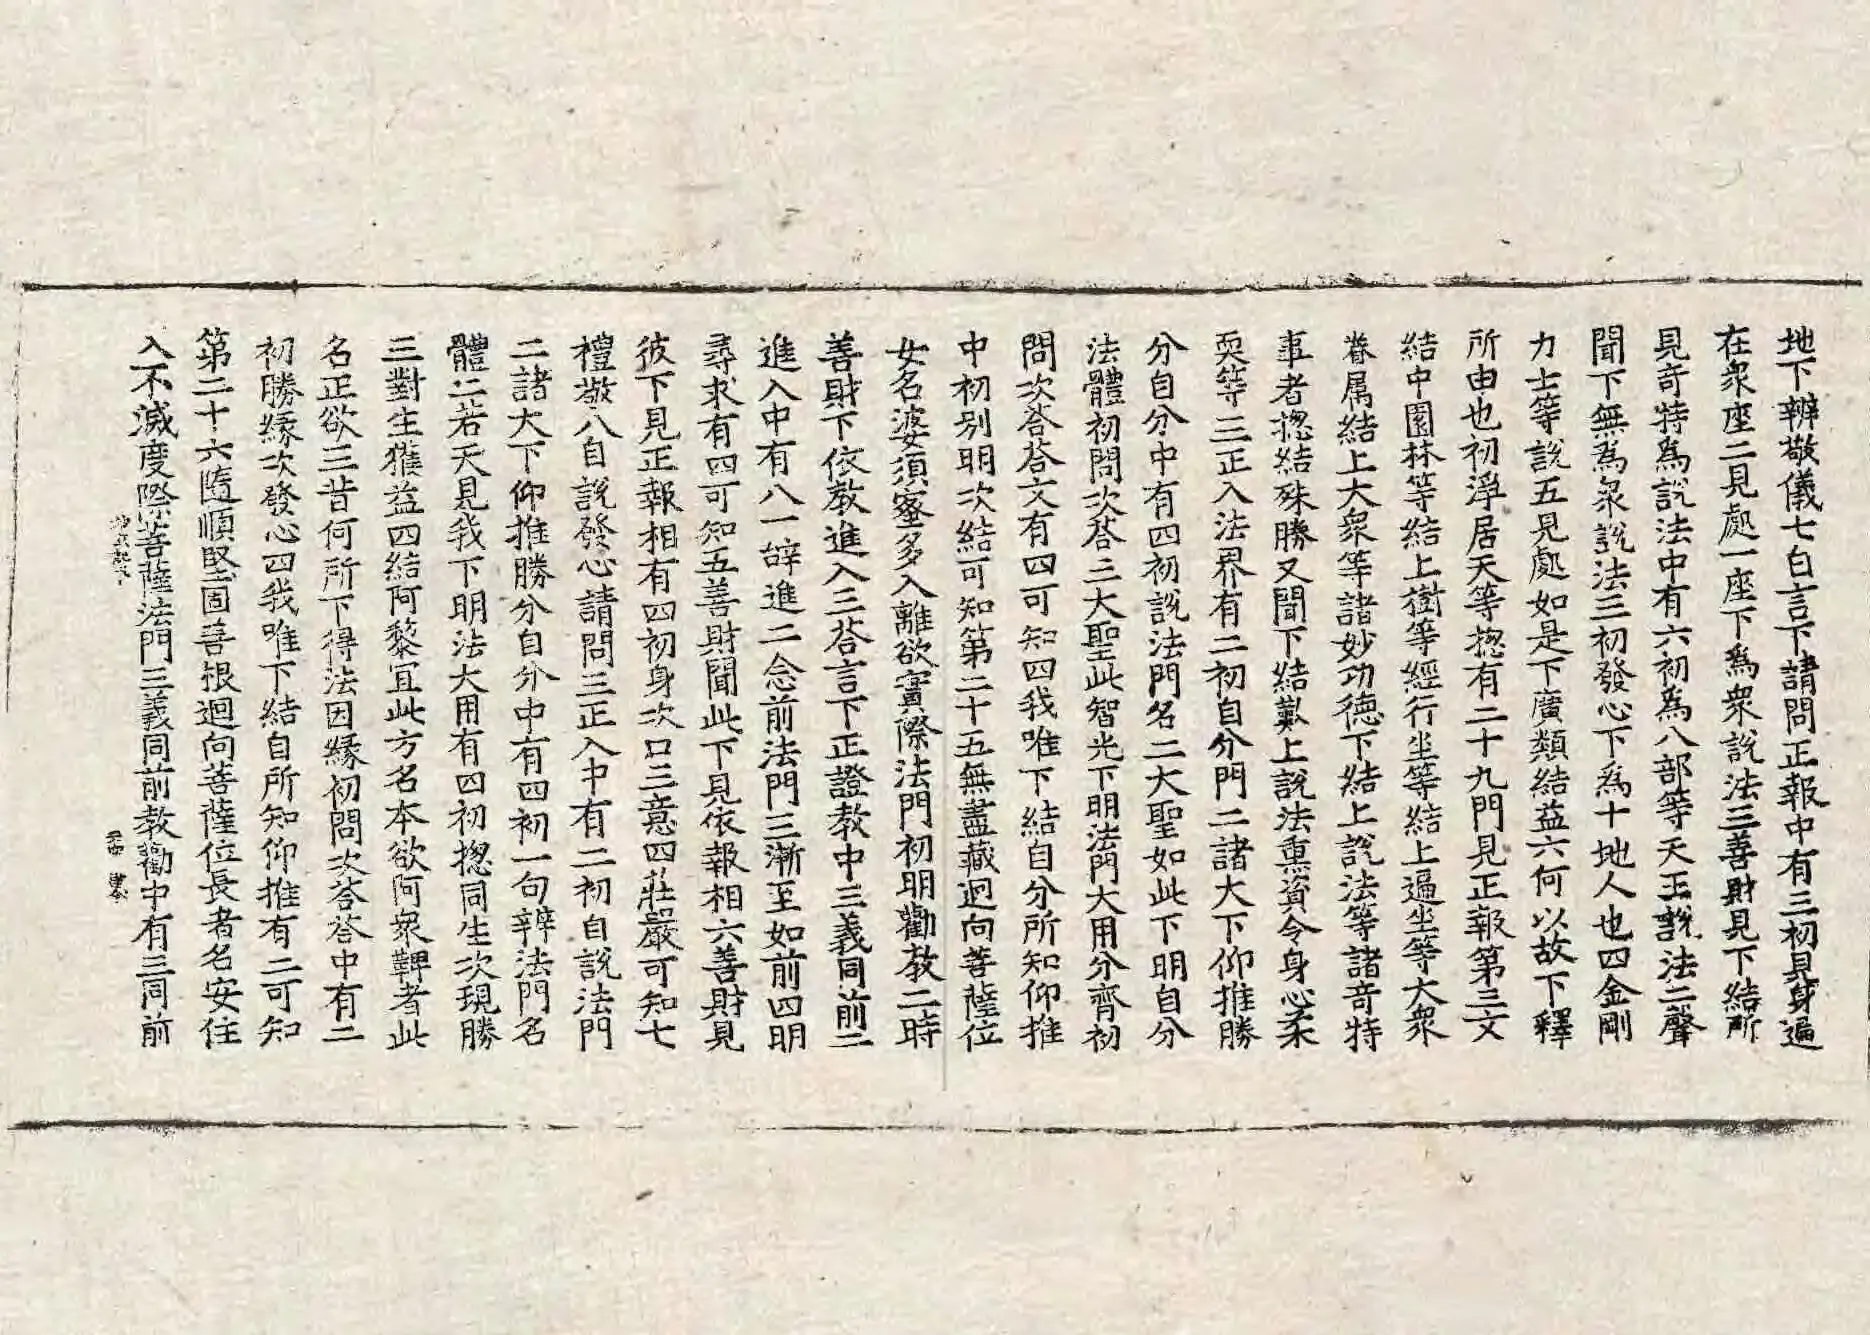 地下辨敬儀七白言下請問正報中有三初見身遍
在衆座二見處一座下爲衆說法三善財見下結所
見奇特爲說法中有六初爲八部等天王說法二聲
聞下無爲衆說法三初發心下爲十地人也四金剛
力士等說五見處如是下廣類結益六何以故下釋
所由也初淨居天等揔有二十九門見正報第三文
結中園林等結上樹等經行坐等結上遍坐等大衆
眷属結上大衆等諸妙功德下結上說法等諸奇特
事者揔結殊勝又聞下結歎上說法熏資令身心柔
耎等三正入法界有二初自分門二諸大下仰推勝
分自分中有四初說法門名二大聖如此下明自分
法體初問次荅三大聖此智光下明法門大用分齊初
問次荅荅文有四可知四我唯下結自分所知仰推
中初別明次結可知第二十五無盡藏迴向菩薩位
女名婆須蜜多入離欲實際法門初明勸教二時
善財下依教進入三荅言下正證教中三義同前二
進入中有八一辝進二念前法門三漸至如前四明
尋求有四可知五善財聞此下見依報相六善財見
彼下見正報相有四初身次口三意四莊嚴可知七
禮敬八自說發心請問三正入中有二初自說法門
二諸大下仰推勝分自分中有四初一句辨法門名
體二若天見我下明法大用有四初揔同生次現勝
三對生獲益四結阿黎宜此方名本欲阿衆鞞者此
名正欲三昔何所下得法因緣初問次荅荅中有二
初勝緣次發心四我唯下結自所知仰推有二可知
第二十六隨順堅固善根迴向菩薩位長者名安住
入不滅度際菩薩法門三義同前教勸中有三同前